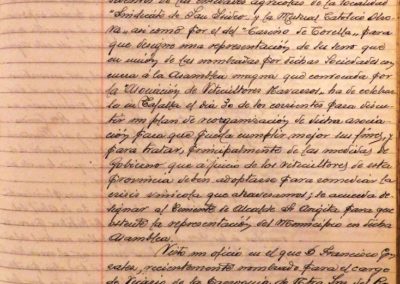 de las entidades agrícolas de la localidad
"Sindicato de San Isidro" y la Mutual Católico Obre-
ra, así como por el del "Casino de Corella", para
que designe una representación de su seno que
en unión de las nombradas por dichas Sociedades con-
curra a la Asamblea magna que convocada por
la Asociación de Viticultores Navarros, ha de celebrar-
lo en Tafalla el día 30 de los corrientes para discu-
tir un plan de reorganización de dicha asocia-
ción para que pueda cumplir mejor sus fines, y
para tratar, principalmente de las medidas de
Gobierno que a juicio de los viticultores de esta
provincia deben adoptarse para remediar la
crisis vinícola que atravesamos; se acuerda de-
signar al Teniente de Alcalde Sr. Arigita para que
ostente la representación del Municipio en dicha
Asamblea.
Visto un oficio en el que D. Francisco Gon-
zalez, recientemente nombrado para el cargo
de Vicario de la Parroquia de Ntra. Sra. del